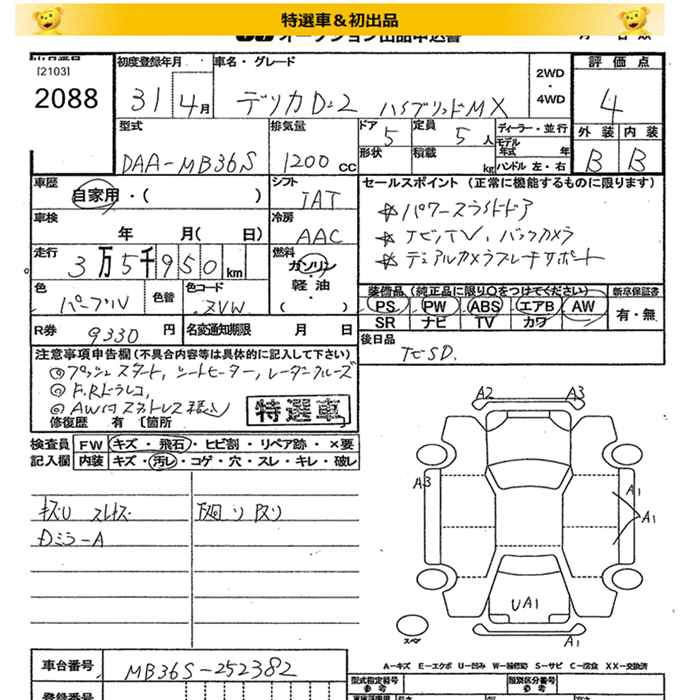 特選車＆初出品
オークション出品申込書
[2103]
2088
初度登録年月
31 4月
車名・グレード
デリカD:2 ハイブリッドMX
2WD
・
4WD
評価点
4
外装 内装
B B
型式
DAA-MB36S
排気量
1200 CC
ドア
5
定員
5人
形状
積載
kg
ディーラー・並行
モデル年式 年
ハンドル 左・右
車歴
自家用・( )
シフト
IAT
車検
年 月( 日)
冷房
AAC
走行
3万5千950km
燃料
ガソリン
軽油
( )
色
パープルV
色替
色コード
ZVW
R券
9330円
名変通知期限 月 日
セールスポイント (正常に機能するものに限ります)
☆パワースライドドア
☆ナビ/TV、バックカメラ
☆デュアルカメラブレーキサポート
装備品(純正品に限り○をつけてください)
PS PW ABS エアB AW
SR ナビ TV カワ
新車保証書
有・無
後日品
ナビSD.
注意事項申告欄(不具合内容等は具体的に記入して下さい)
◎プッシュスタート, シートヒーター, レーダークルーズ
◎F.Rドラレコ,
◎AW付スタッドレス積込
特選車
修復歴 有 〔箇所 〕
検査員記入欄
FW キズ・飛石・ヒビ割・リペア跡・×要
内装 キズ・汚レ・コゲ・穴・スレ・キレ・破レ
キズU スレキズ
Dミラ-A
下廻り サビ
A2 A3
A3
A1
A1
UA1
A1
スペア
A-キズ E-エクボ U-凹み W-補修跡 S-サビ C-腐食 XX-交換済
車台番号
MB36S-252382
登録番号
型式指定番号
参考
類別区分番号
参考